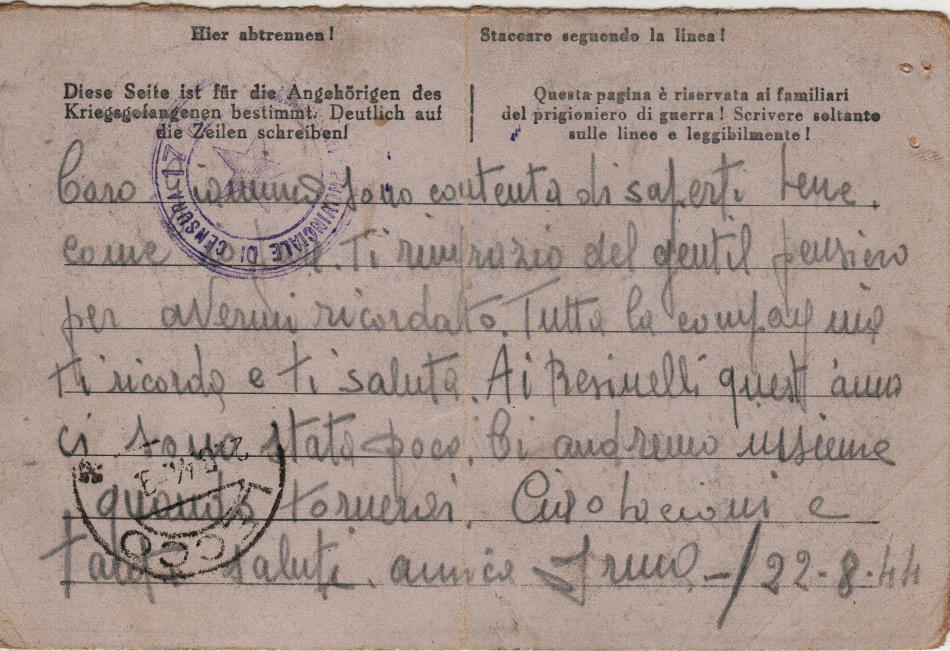 Hier abtrennen!
Staccare seguendo la linea!
Diese Seite ist für die Angehörigen des
Kriegsgefangenen bestimmt. Deutlich auf
die Zeilen schreiben!
Questa pagina è riservata ai familiari
del prigioniero di guerra! Scrivere soltanto
sulle linee e leggibilmente!
PROVINCIALE DI CENSURA 17
Caro sono contenta di saperti bene,
come Ti ringrazio del gentil pensiero
per avermi ricordato. Tutta la compagnia
ti ricorda e ti saluta. Ai Resinelli quest'anno
ci sono stata poco. Ci andremo insieme
quando tornerai. e
saluti, amica Irma -/22-8-44
LECCO